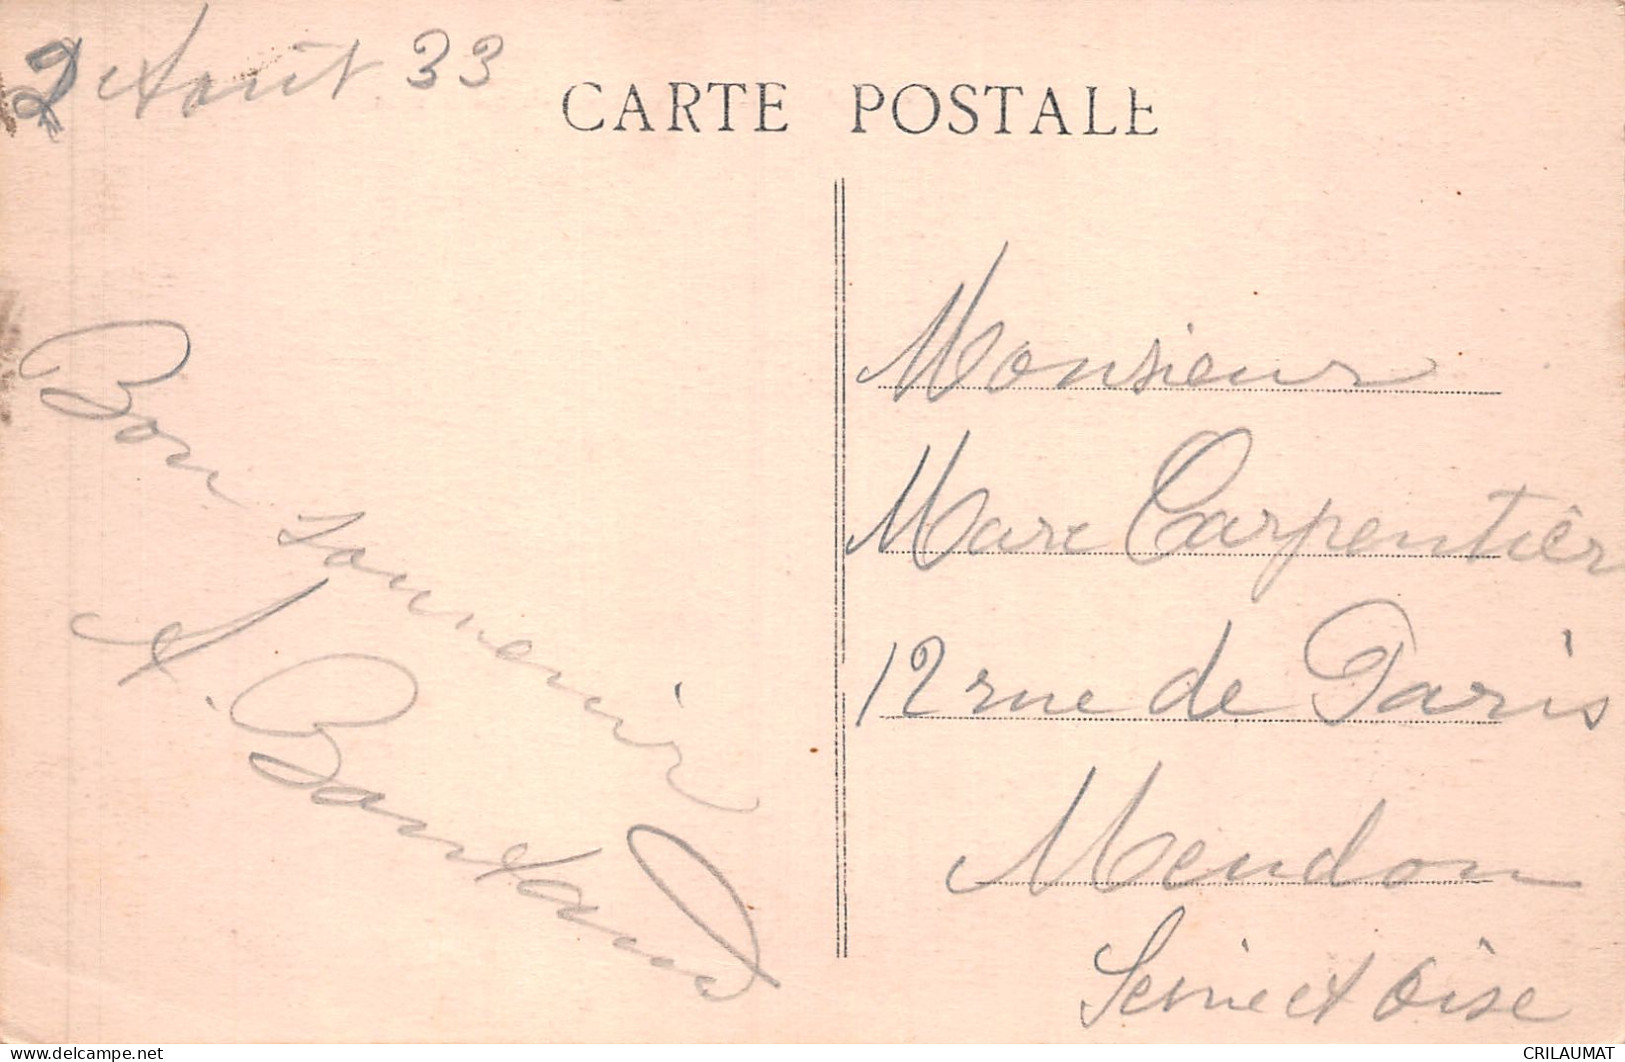 2 Août 33
CARTE POSTALE
Bon souvenir
A.
Monsieur
Marc Carpentier
12 rue de Paris
Meudon
Seine et Oise
delcampe.net
CRILAUMAT